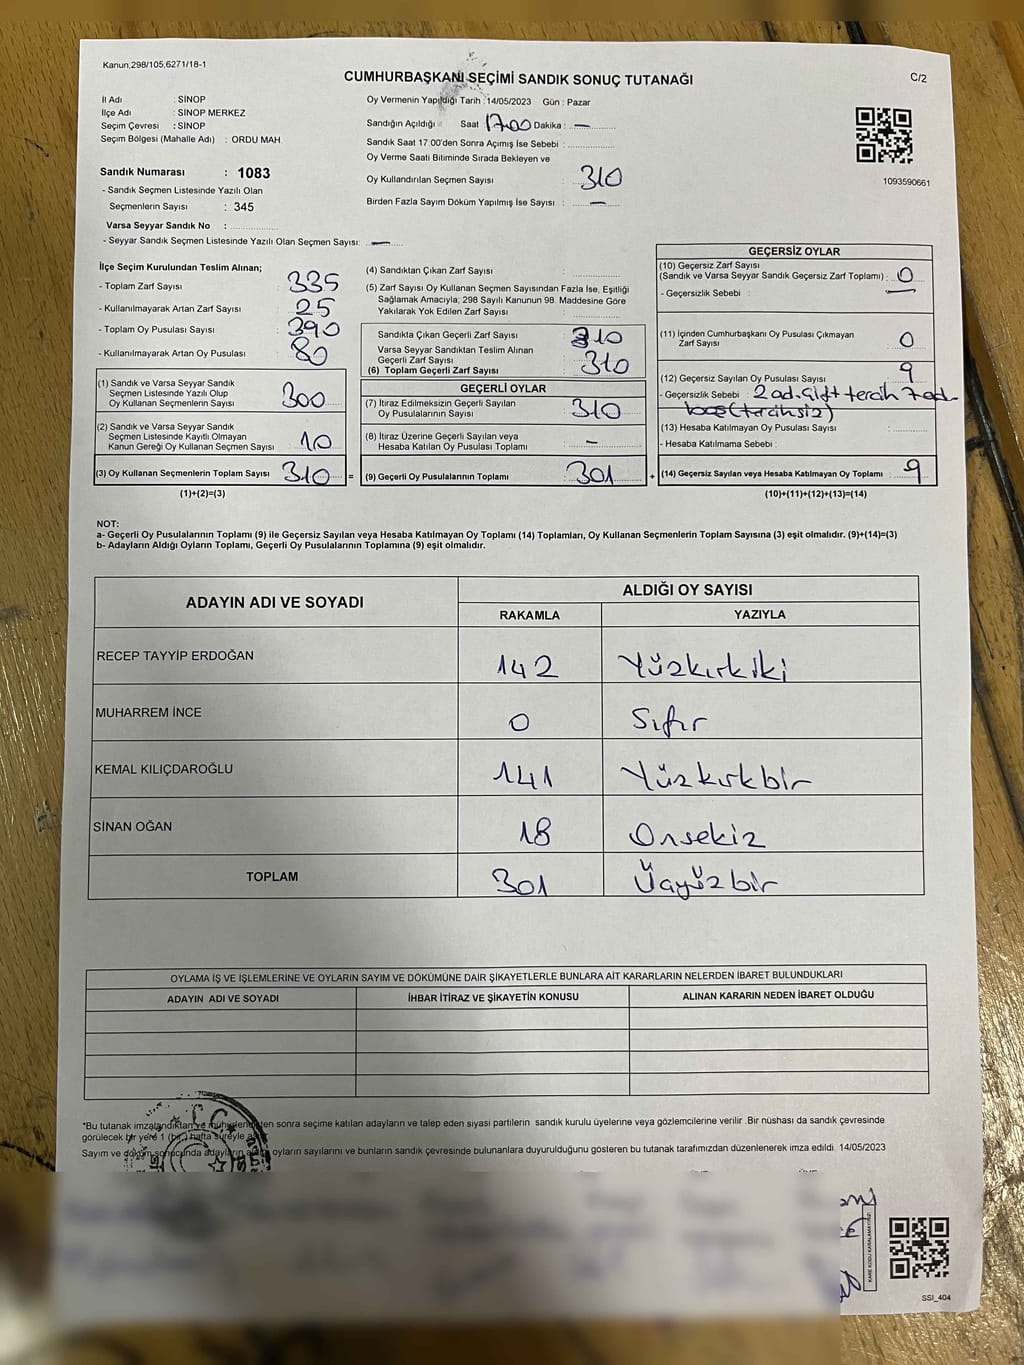 Kanun,298/105,6271/18-1
CUMHURBAŞKANI SEÇİMİ SANDIK SONUÇ TUTANAĞI
C/2
İl Adı : SİNOP
İlçe Adı : SİNOP MERKEZ
Seçim Çevresi : SİNOP
Seçim Bölgesi (Mahalle Adı) : ORDU MAH
Sandık Numarası : 1083
- Sandık Seçmen Listesinde Yazılı Olan
Seçmenlerin Sayısı : 345
Varsa Seyyar Sandık No :
- Seyyar Sandık Seçmen Listesinde Yazılı Olan Seçmen Sayısı: —
Oy Vermenin Yapıldığı Tarih : 14/05/2023 Gün : Pazar
Sandığın Açıldığı Saat 17.00 Dakika : —
Sandık Saat 17:00'den Sonra Açımış İse Sebebi :
Oy Verme Saati Bitiminde Sırada Bekleyen ve
Oy Kullandırılan Seçmen Sayısı : 310
Birden Fazla Sayım Döküm Yapılmış İse Sayısı : —
1093590661
İlçe Seçim Kurulundan Teslim Alınan;
- Toplam Zarf Sayısı : 335
- Kullanılmayarak Artan Zarf Sayısı : 25
- Toplam Oy Pusulası Sayısı : 390
- Kullanılmayarak Artan Oy Pusulası : 80
(1) Sandık ve Varsa Seyyar Sandık
Seçmen Listesinde Yazılı Olup
Oy Kullanan Seçmenlerin Sayısı : 300
(2) Sandık ve Varsa Seyyar Sandık
Seçmen Listesinde Kayıtlı Olmayan
Kanun Gereği Oy Kullanan Seçmen Sayısı : 10
(3) Oy Kullanan Seçmenlerin Toplam Sayısı : 310 =
(1)+(2)=(3)
(4) Sandıktan Çıkan Zarf Sayısı :
(5) Zarf Sayısı Oy Kullanan Seçmen Sayısından Fazla İse, Eşitliği
Sağlamak Amacıyla; 298 Sayılı Kanunun 98. Maddesine Göre
Yakılarak Yok Edilen Zarf Sayısı :
Sandıkta Çıkan Geçerli Zarf Sayısı : 310
Varsa Seyyar Sandıktan Teslim Alınan
Geçerli Zarf Sayısı :
(6) Toplam Geçerli Zarf Sayısı : 310
GEÇERLİ OYLAR
(7) İtiraz Edilmeksizin Geçerli Sayılan
Oy Pusulalarının Sayısı : 310
(8) İtiraz Üzerine Geçerli Sayılan veya
Hesaba Katılan Oy Pusulası Toplamı : —
(9) Geçerli Oy Pusulalarının Toplamı : 301 +
GEÇERSİZ OYLAR
(10) Geçersiz Zarf Sayısı
(Sandık ve Varsa Seyyar Sandık Geçersiz Zarf Toplamı) : 0
- Geçersizlik Sebebi : —
(11) İçinden Cumhurbaşkanı Oy Pusulası Çıkmayan
Zarf Sayısı : 0
(12) Geçersiz Sayılan Oy Pusulası Sayısı : 9
- Geçersizlik Sebebi : 2 ad. çift tercih 7 ad.
boş (tercihsiz)
(13) Hesaba Katılmayan Oy Pusulası Sayısı :
- Hesaba Katılmama Sebebi :
(14) Geçersiz Sayılan veya Hesaba Katılmayan Oy Toplamı : 9
(10)+(11)+(12)+(13)=(14)
NOT:
a- Geçerli Oy Pusulalarının Toplamı (9) ile Geçersiz Sayılan veya Hesaba Katılmayan Oy Toplamı (14) Toplamları, Oy Kullanan Seçmenlerin Toplam Sayısına (3) eşit olmalıdır. (9)+(14)=(3)
b- Adayların Aldığı Oyların Toplamı, Geçerli Oy Pusulalarının Toplamına (9) eşit olmalıdır.
ADAYIN ADI VE SOYADI
ALDIĞI OY SAYISI
RAKAMLA YAZIYLA
RECEP TAYYİP ERDOĞAN 142 Yüzkırkiki
MUHARREM İNCE 0 Sıfır
KEMAL KILIÇDAROĞLU 141 Yüzkırkbir
SİNAN OĞAN 18 Onsekiz
TOPLAM 301 Üçyüzbir
OYLAMA İŞ VE İŞLEMLERİNE VE OYLARIN SAYIM VE DÖKÜMÜNE DAİR ŞİKAYETLERLE BUNLARA AİT KARARLARIN NELERDEN İBARET BULUNDUKLARI
ADAYIN ADI VE SOYADI İHBAR İTİRAZ VE ŞİKAYETİN KONUSU ALINAN KARARIN NEDEN İBARET OLDUĞU
*Bu tutanak imzalandıktan ve mühürlendikten sonra seçime katılan adayların ve talep eden siyasi partilerin sandık kurulu üyelerine veya gözlemcilerine verilir .Bir nüshası da sandık çevresinde
görülecek bir yere 1 (bir) hafta süreyle
Sayım ve döküm sonucunda adayların oyların sayılarını ve bunların sandık çevresinde bulunanlara duyurulduğunu gösteren bu tutanak tarafımızdan düzenlenerek imza edildi. 14/05/2023
T.C.
KARE KODU KARALAMAYINIZ!
SSI_404